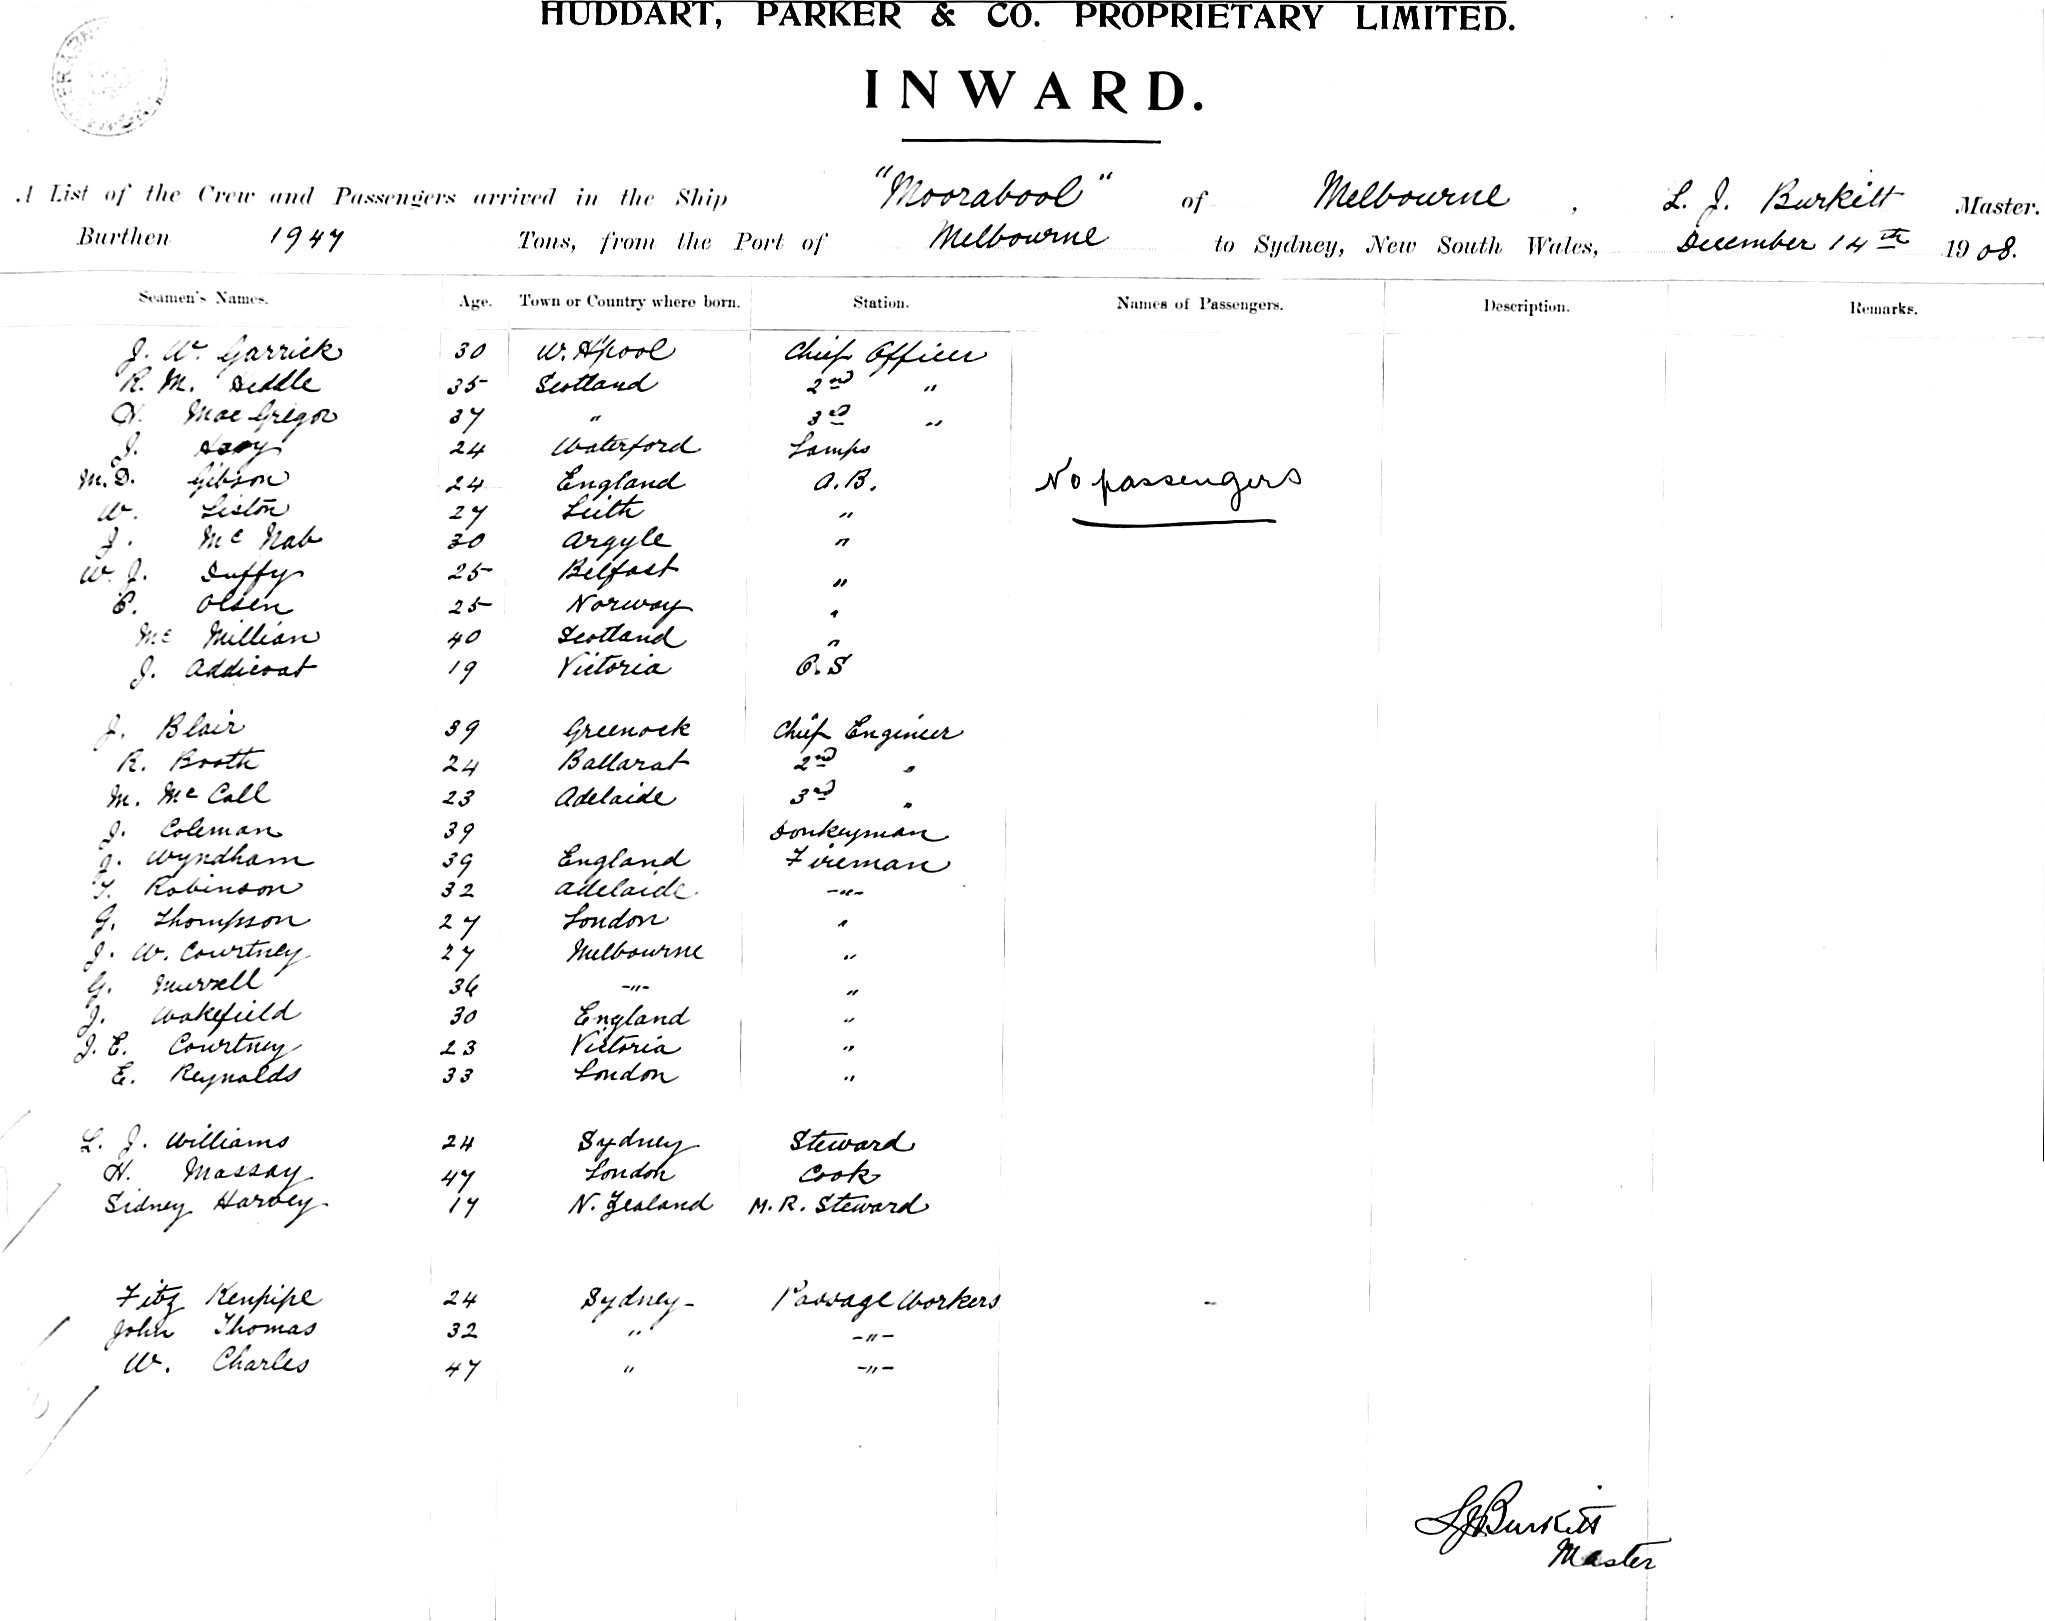 HUDDART, PARKER & CO. PROPRIETARY LIMITED.
INWARD.
A List of the Crew and Passengers arrived in the Ship "Moorabool" of Melbourne, L. J. Burkitt Master.
Burthen 1947 Tons, from the Port of Melbourne to Sydney, New South Wales, December 14th 1908.
Seamen's Names. Age. Town or Country where born. Station. Names of Passengers. Description. Remarks.
J. W. Garrick 30 W. H'pool Chief Officer
R. M. Heddle 35 Scotland 2nd "
H. MacGregor 37 " 3rd "
J. 24 Waterford Lamps
M. D. Gibson 24 England A. B. No passengers
W. Liston 27 Leith "
J. McNab 30 Argyle "
W. J. Duffy 25 Belfast "
Olsen 25 Norway "
McMillian 40 Scotland "
J. Addicoat 19 Victoria O. S
J. Blair 39 Greenock Chief Engineer
R. Booth 24 Ballarat 2nd "
M. McCall 23 Adelaide 3rd "
J. Coleman 39 Donkeyman
J. Wyndham 39 England Fireman
T. Robinson 32 Adelaide -"-
G. Thompson 27 London "
J. W. Courtney 27 Melbourne "
G. Murrell 36 -"- "
J. Wakefield 30 England "
J. E. Courtney 23 Victoria "
E. Reynolds 33 London "
L. J. Williams 24 Sydney Steward
H. Massay 47 London Cook
Sidney Harvey 17 N. Zealand M. R. Steward
Fitz Kenpipe 24 Sydney - Passage Workers
John Thomas 32 " -"-
W. Charles 47 " -"-
L J Burkitt
Master